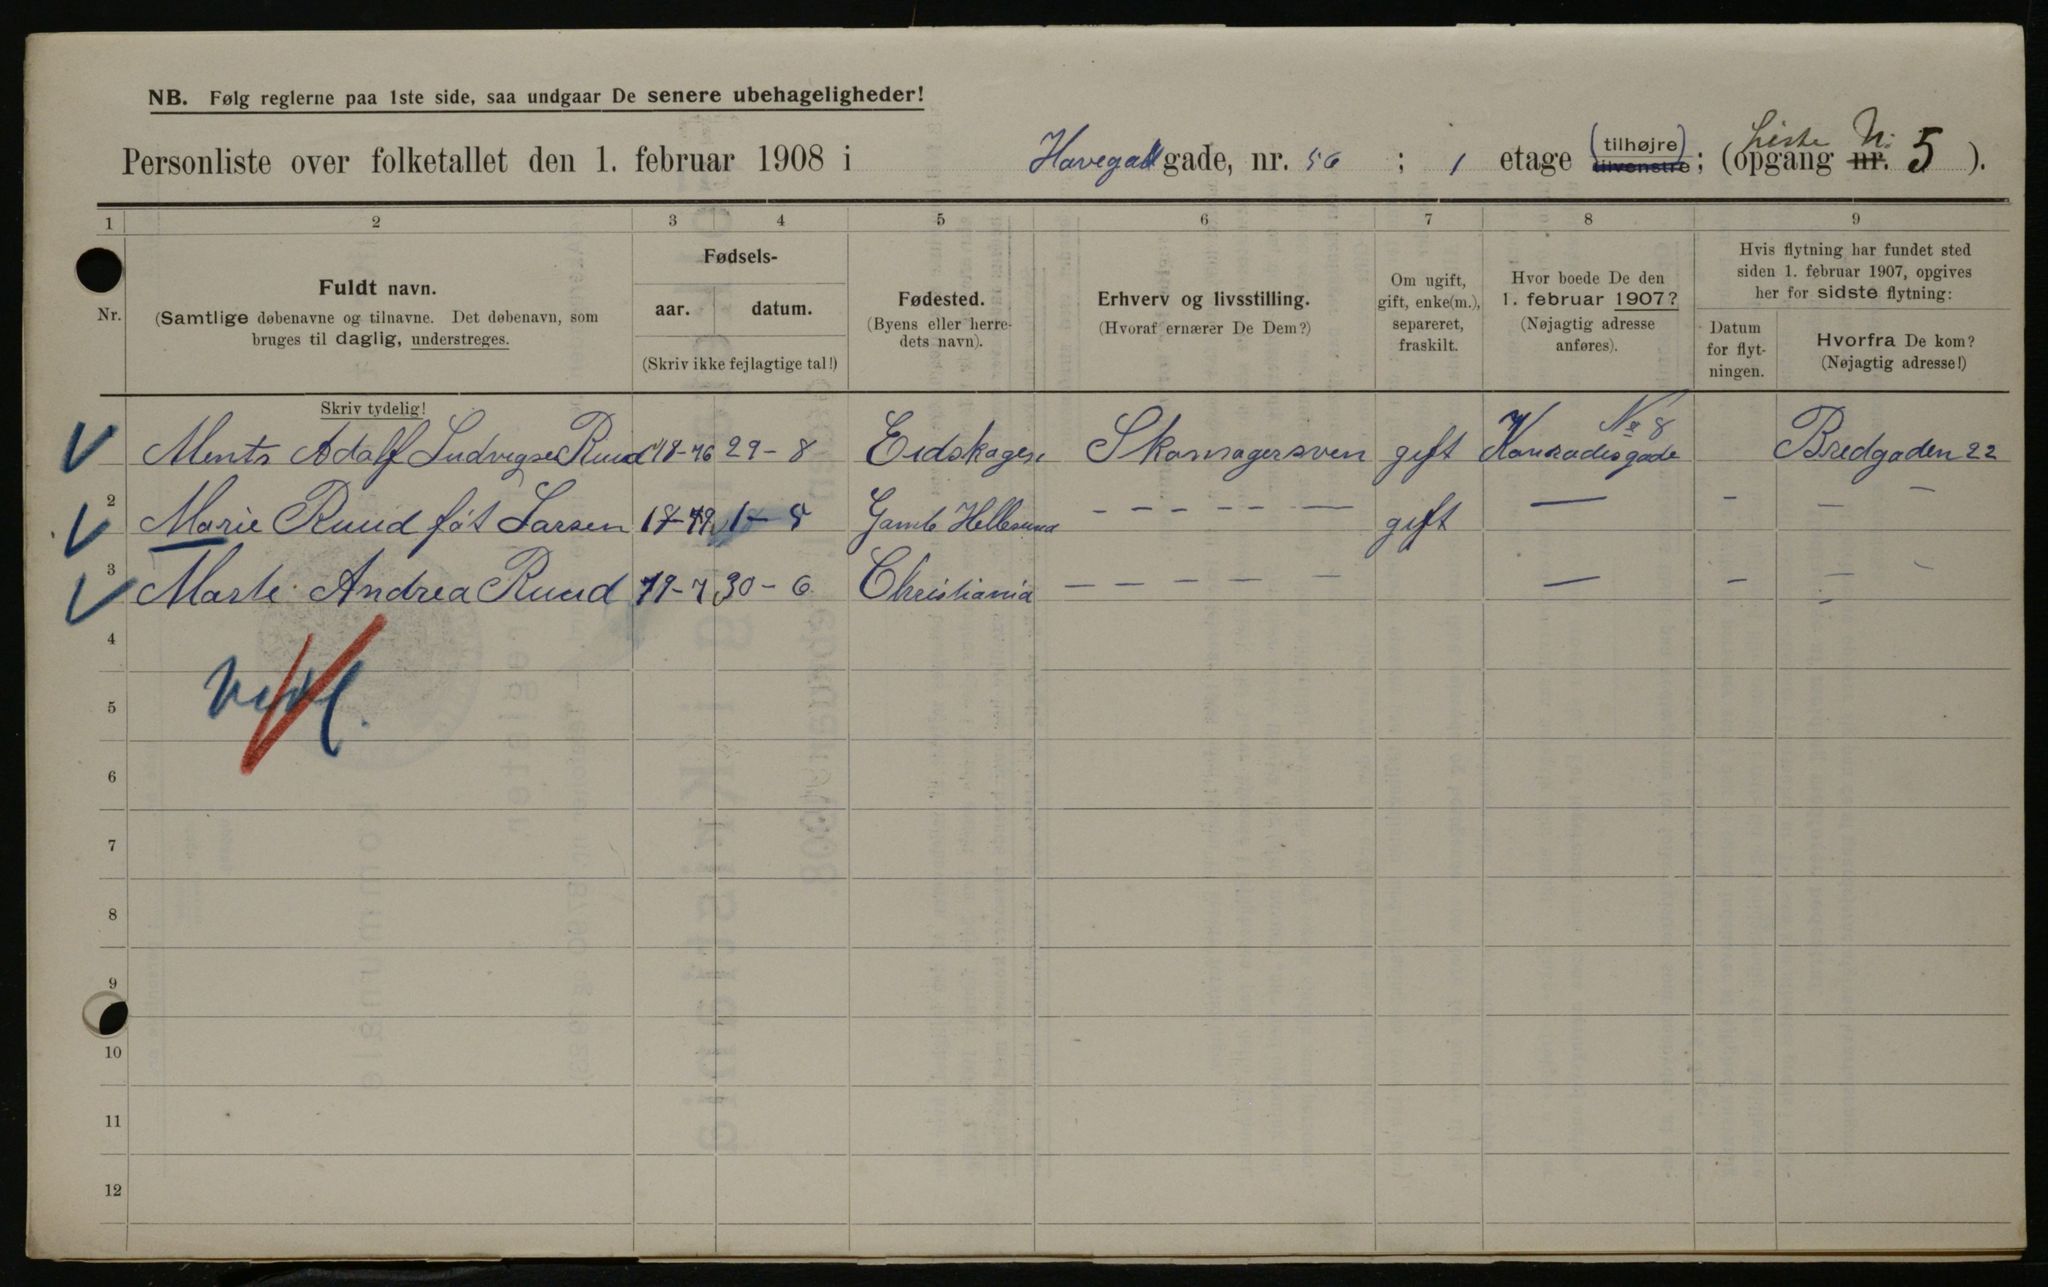 NB. Følg reglerne paa 1ste side, saa undgaar De senere ubehageligheder!
Personliste over folketallet den 1. februar 1908 i Havegad gade, nr. 56 ; 1 etage (tilhøjre) tilvenstre; (opgang nr. Liste N: 5 ).
1 2 3 4 5 6 7 8 9
Nr.
Fuldt navn.
(Samtlige døbenavne og tilnavne. Det døbenavn, som
bruges til daglig, understreges.
Skriv tydelig!
Fødsels-
aar. datum.
(Skriv ikke fejlagtige tal!)
Fødested.
(Byens eller herre-
dets navn).
Erhverv og livsstilling.
(Hvoraf ernærer De Dem?)
Om ugift,
gift, enke(m.),
separeret,
fraskilt.
Hvor boede De den
1. februar 1907?
(Nøjagtig adresse
anføres).
Hvis flytning har fundet sted
siden 1. februar 1907, opgives
her for sidste flytning:
Datum
for flyt-
ningen.
Hvorfra De kom?
(Nøjagtig adresse!)
Ments Adolf Ludvigsen Ruud 18-76 29-8 Eidskogen Skomagersven gift Konradisgade No 8 Bredgaden 22
2 Marie Ruud føt Larsen 18-79 1-8 Gamle Hellesund - - - - - - gift — - — -
3 Marte Andrea Ruud 19-7 30-6 Christiania - - - - - — - — -
4
5
6
7
8
9
10
11
12